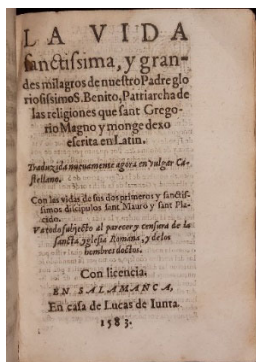 LA VIDA
sanctissima, y gran-
des milagros de nuestro Padre glo
riosissimo S. Benito, Patriarcha de
las religiones que sant Grego-
rio Magno y monge dexo
escrita en Latin.
Traduzida nueuamente agora en vulgar Ca-
stellano.
Con las vidas de sus dos primeros y sanctis-
simos discipulos sant Mauro y sant Pla-
cido.
Va todo subjecto al parecer y censura de la
sancta yglesia Romana, y de los
hombres doctos.
Con licencia.
EN SALAMANCA,
En casa de Lucas de Iunta.
1583.